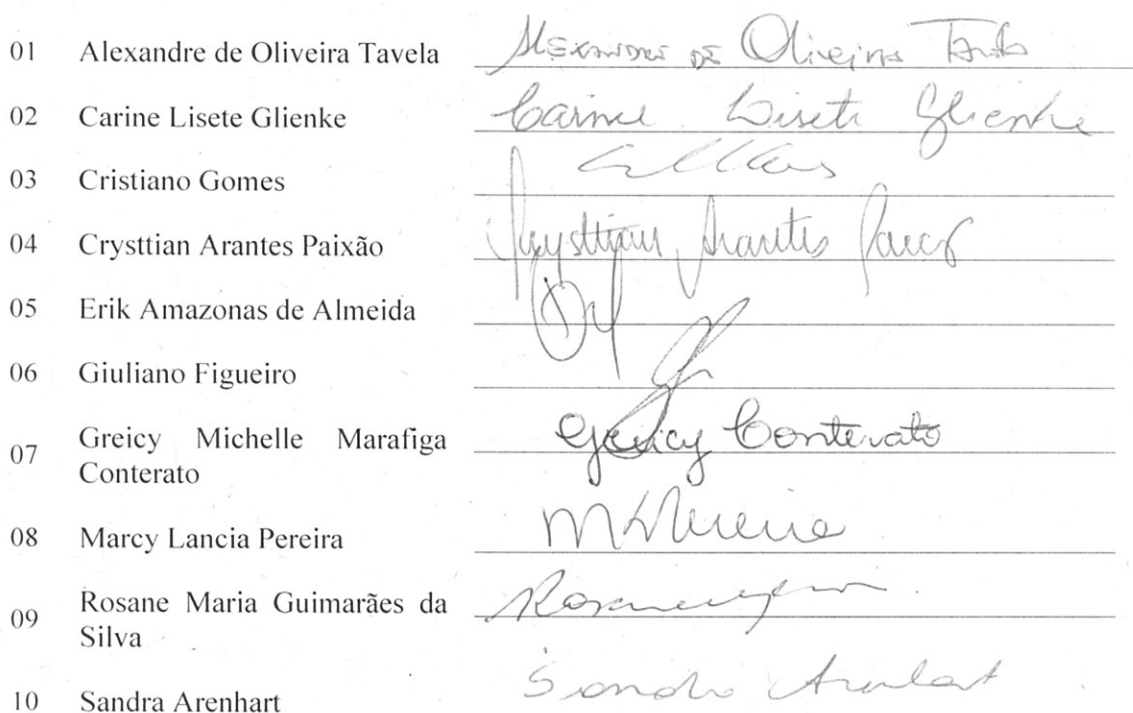 01 Alexandre de Oliveira Tavela Alexandre de Oliveira
02 Carine Lisete Glienke Carine Lisete Glienke
03 Cristiano Gomes
04 Crysttian Arantes Paixão Crysttian Arantes
05 Erik Amazonas de Almeida
06 Giuliano Figueiro
07 Greicy Michelle Marafiga Greicy Conterato
Conterato
08 Marcy Lancia Pereira
09 Rosane Maria Guimarães da
Silva
10 Sandra Arenhart